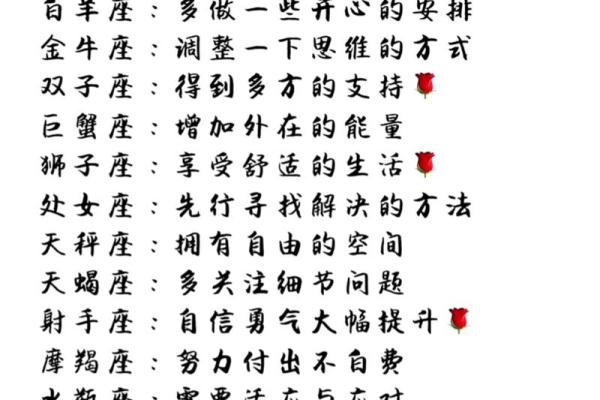 百羊座：多做一些开心的安排
金牛座：调整一下思维的方式
双子座：得到多方的支持🌹
巨蟹座：增加外在的能量
狮子座：享受舒适的生活🌹
处女座：先行寻找解决的方法
天秤座：拥有自由的空间
天蝎座：多关注细节问题
射手座：自信勇气大幅提升🌹
摩羯座：努力付出不白费
水瓶座：需要活在当